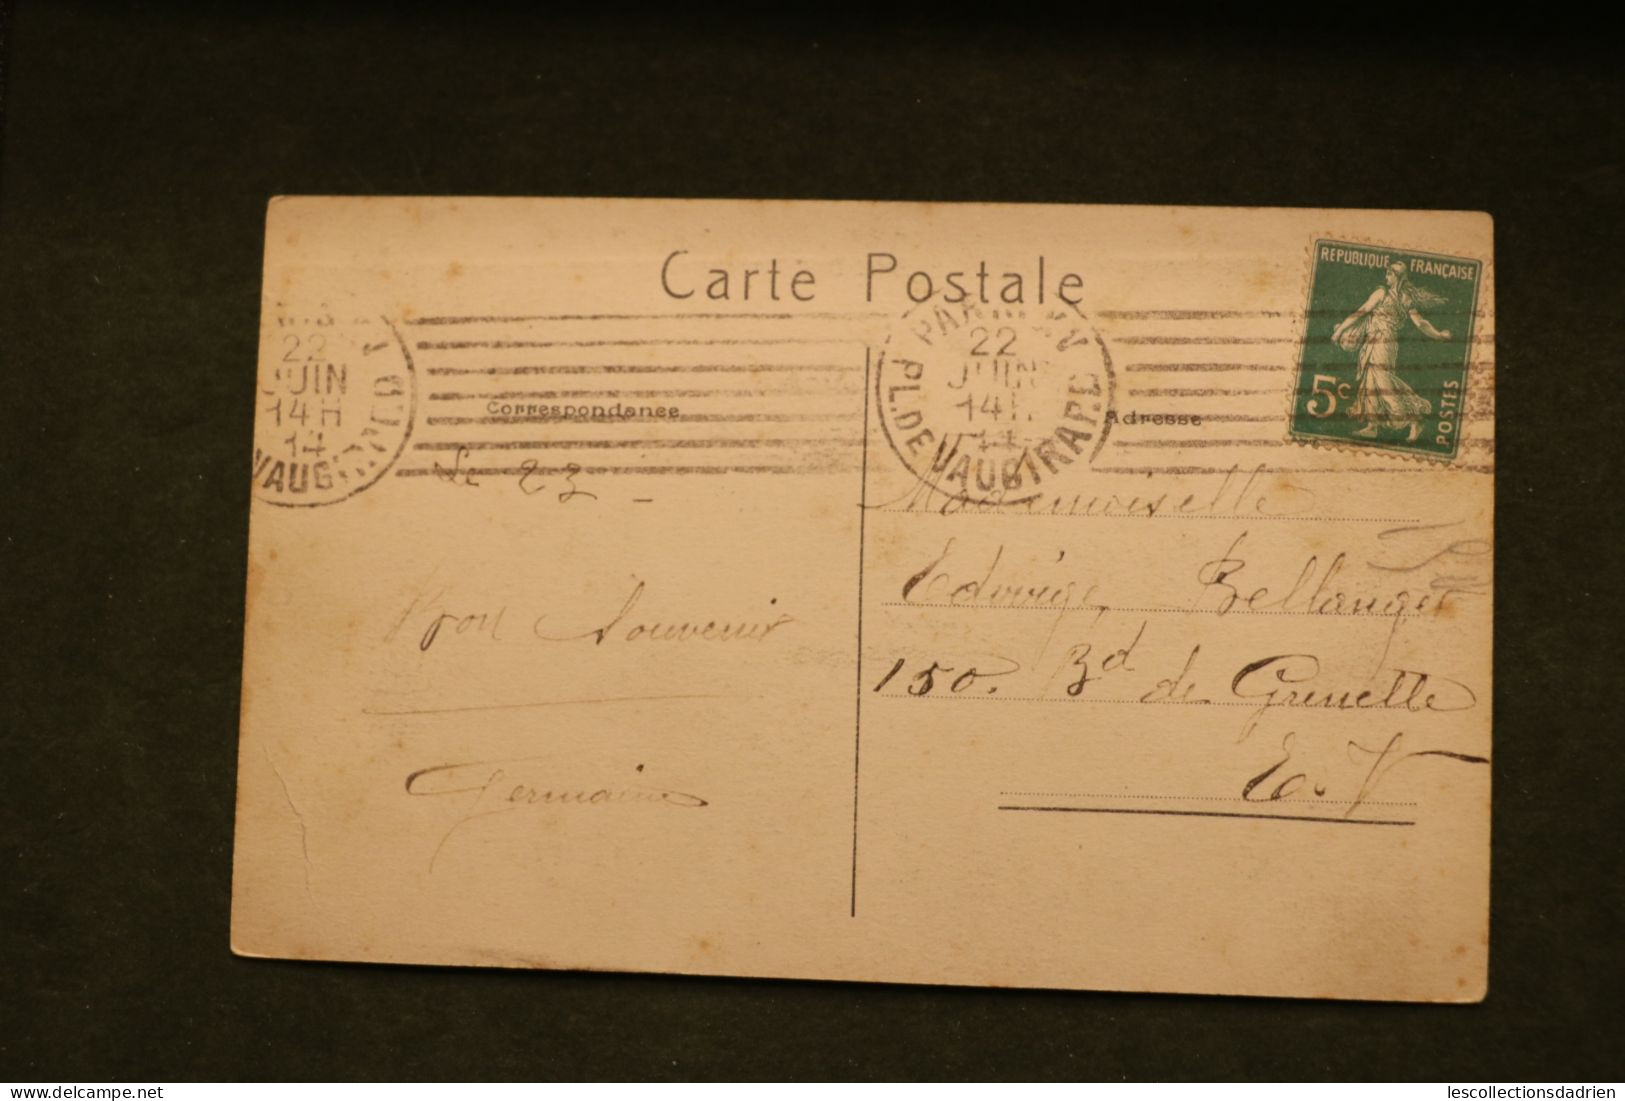 Carte Postale
REPUBLIQUE FRANÇAISE
5c
POSTES
22
JUIN
14H
14
VAUGIRARD
PARIS XV
PL. DE VAUGIRARD
22
JUIN
14H
14
Correspondance
Adresse
Le 23 _
Bon Souvenir
Germaine
Mademoiselle
Edwige Bellanger
150. Bd de Grenelle
E. V
delcampe.net
lescollectionsdadrien